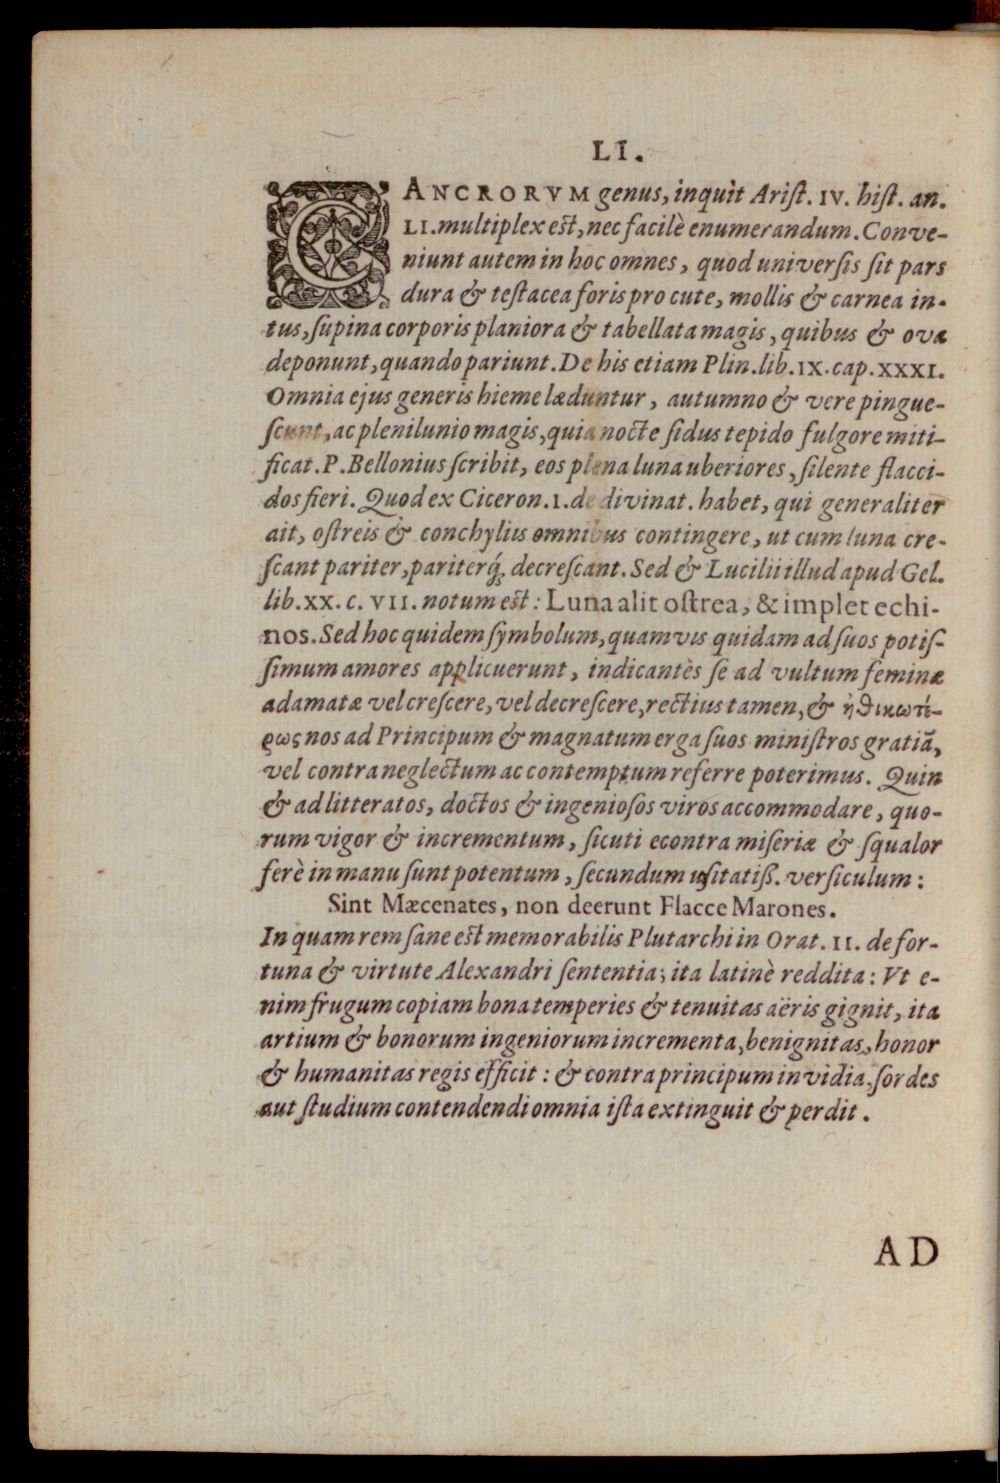 LI.
CANCRORVM genus, inquit Arist. IV. hist. an.
LI. multiplex est, nec facilè enumerandum. Conve-
niunt autem in hoc omnes, quod universis sit pars
dura & testacea foris pro cute, mollis & carnea in-
tus, supina corporis planiora & tabellata magis, quibus & ova
deponunt, quando pariunt. De his etiam Plin. lib. IX. cap. XXXI.
Omnia ejus generis hieme læduntur, autumno & vere pingue-
scunt, ac plenilunio magis, quia nocte sidus tepido fulgore miti-
ficat. P. Bellonius scribit, eos plena luna uberiores, silente flacci-
dos fieri. Quod ex Ciceron. I. de divinat. habet, qui generaliter
ait, ostreis & conchyliis omnibus contingere, ut cum luna cre-
scant pariter, pariterq́; decrescant. Sed & Lucilii illud apud Gel.
lib. XX. c. VII. notum est: Luna alit ostrea, & implet echi-
nos. Sed hoc quidem symbolum, quamvis quidam ad suos potis-
simum amores applicuerunt, indicantès se ad vultum feminæ
adamatæ vel crescere, vel decrescere, rectius tamen, & ἠθικωτέ-
ρως nos ad Principum & magnatum erga suos ministros gratiã,
vel contra neglectum ac contemptum referre poterimus. Quin
& ad litteratos, doctos & ingeniosos viros accommodare, quo-
rum vigor & incrementum, sicuti econtra miseriæ & squalor
ferè in manu sunt potentum, secundum usitatiß. versiculum:
Sint Mæcenates, non deerunt Flacce Marones.
In quam rem sane est memorabilis Plutarchi in Orat. II. de for-
tuna & virtute Alexandri sententia; ita latinè reddita: Vt e-
nim frugum copiam bona temperies & tenuitas aëris gignit, ita
artium & bonorum ingeniorum incrementa, benignitas, honor
& humanitas regis efficit: & contra principum invidia, sordes
aut studium contendendi omnia ista extinguit & perdit.
AD